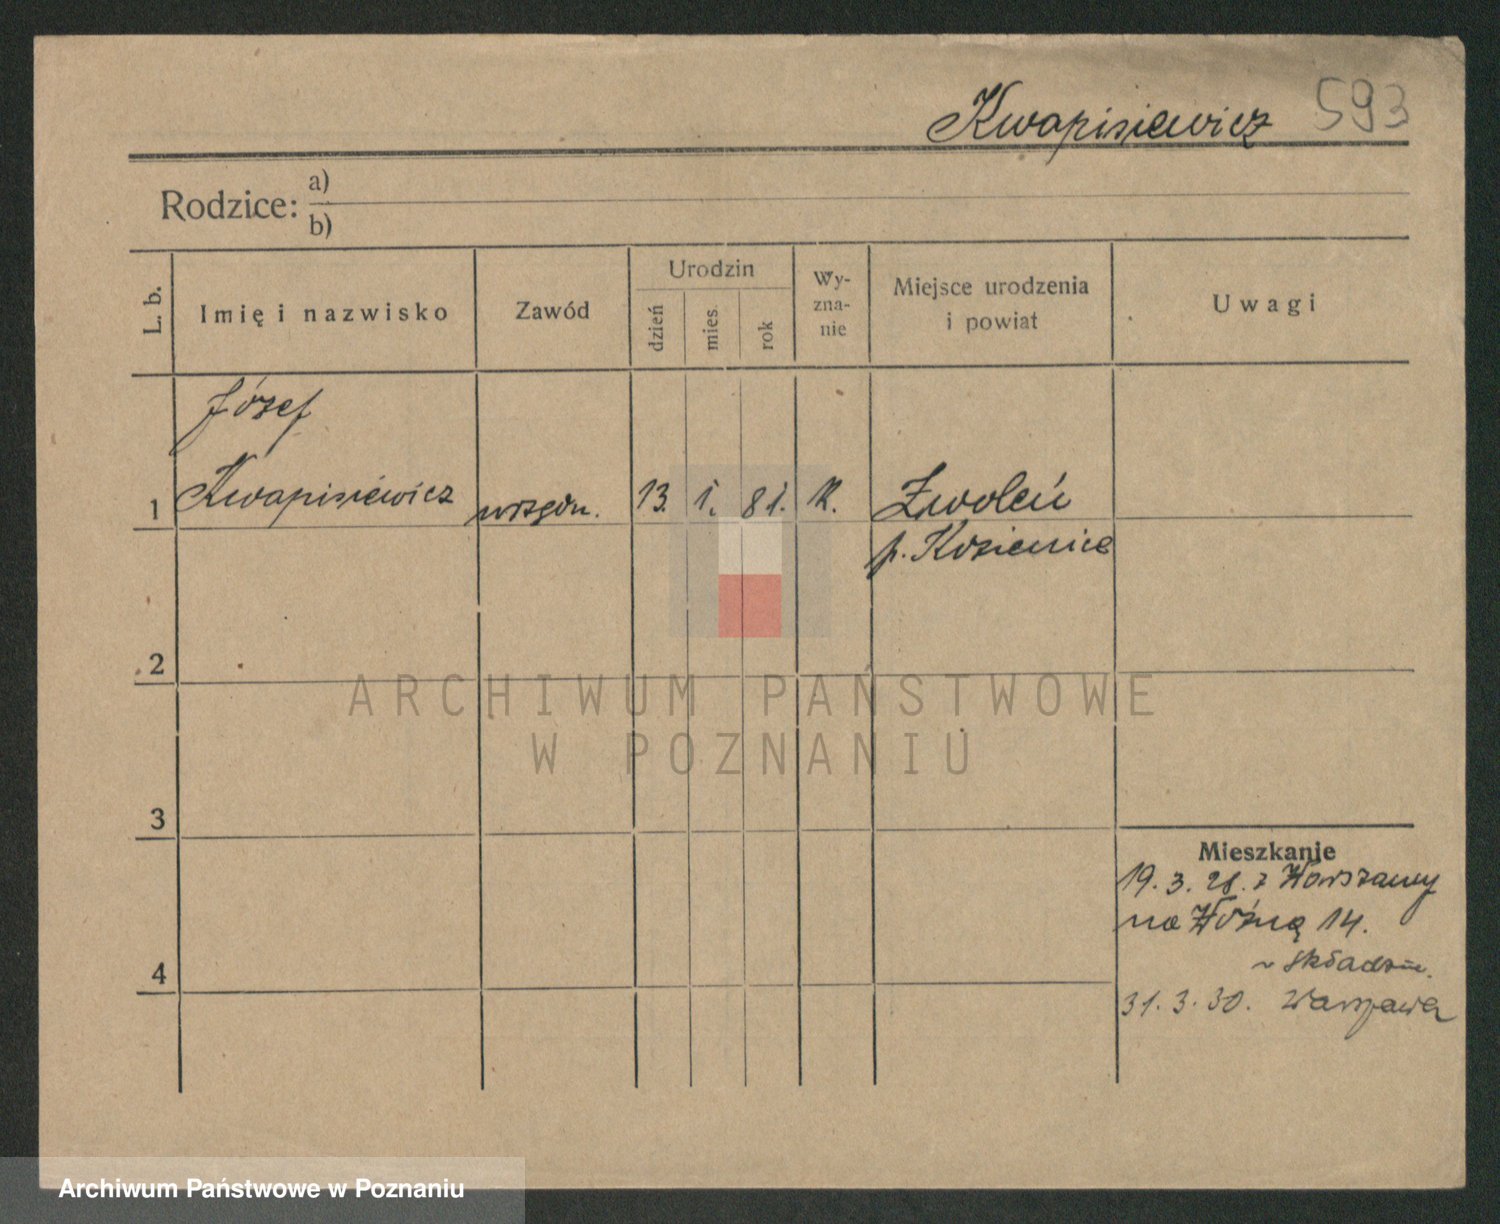 Kwapisiewicz 593
Rodzice: a)
b)
L. b.
Imię i nazwisko
Zawód
Urodzin
dzień
mies.
rok
Wy-
zna-
nie
Miejsce urodzenia
i powiat
Uwagi
Józef
1 Kwapisiewicz urzędn. 13. 1. 81. Zwoleń
p. Kozienice
2
ARCHIWUM PAŃSTWOWE
W POZNANIU
3
Mieszkanie
19. 3. 28. z Warszawy
na Woźną 14.
4
31. 3. 30. Warszawa
Archiwum Państwowe w Poznaniu